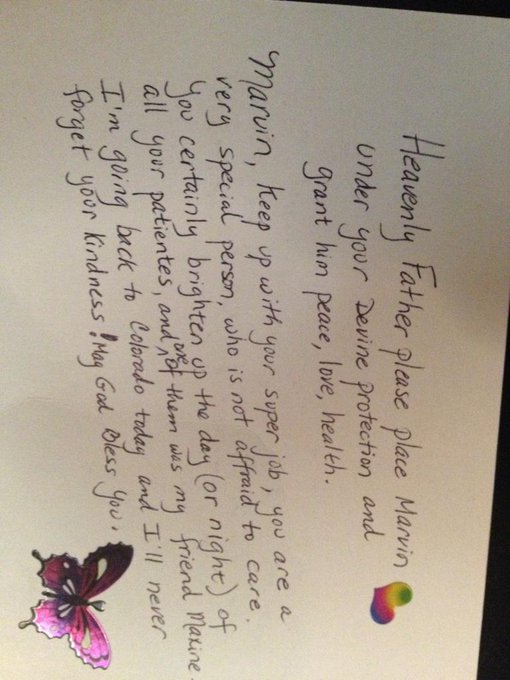 Heavenly Father please place Marvin
under your Devine protection and
grant him peace, love, health.
Marvin, Keep up with your super job, you are a
very special person, who is not affraid to care.
You certainly brighten up the day (or night) of
all your patientes, and one of them was my friend Maxine.
I'm going back to Colorado today and I'll never
forget your Kindness! May God Bless You.